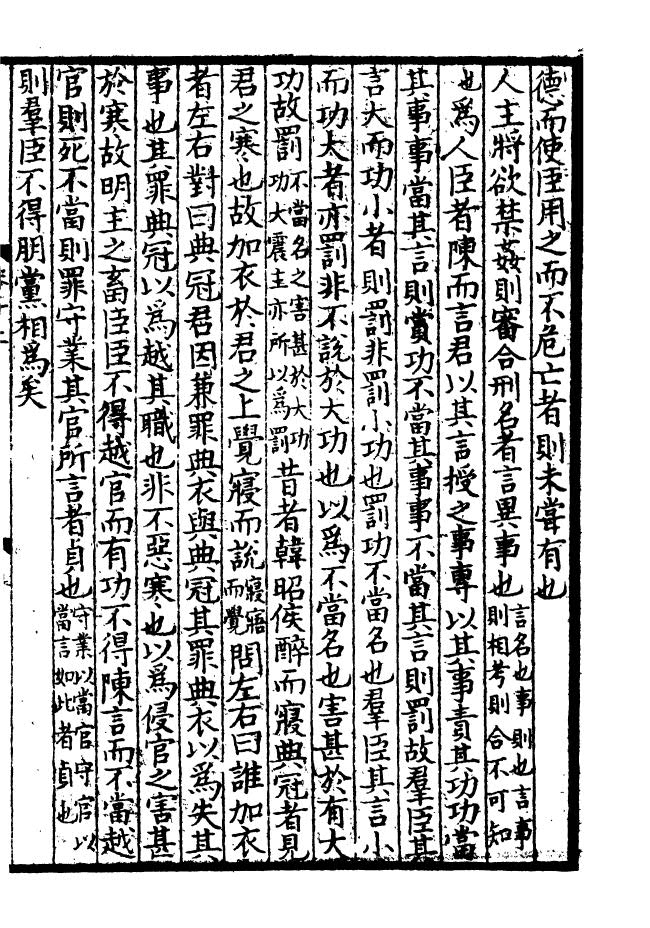 德而使臣用之而不危亡者則未嘗有也
人主將欲禁姦則審合刑名者言異事也言名也事則也言事則相考則合不可知
也爲人臣者陳而言君以其言授之事專以其事責其功功當
其事事當其言則賞功不當其事事不當其言則罰故羣臣其
言大而功小者則罰非罰小功也罰功不當名也羣臣其言小
而功大者亦罰非不說於大功也以爲不當名也害甚於有大
功故罰不當名之害甚於大功功大震主亦所以爲罰昔者韓昭侯醉而寢典冠者見
君之寒也故加衣於君之上覺寢而說寢寤而覺問左右曰誰加衣
者左右對曰典冠君因兼罪典衣與典冠其罪典衣以爲失其
事也其罪典冠以爲越其職也非不惡寒也以爲侵官之害甚
於寒故明主之畜臣臣不得越官而有功不得陳言而不當越
官則死不當則罪守業其官所言者貞也守業以當官守官以當言如此者貞也
則羣臣不得朋黨相爲矣